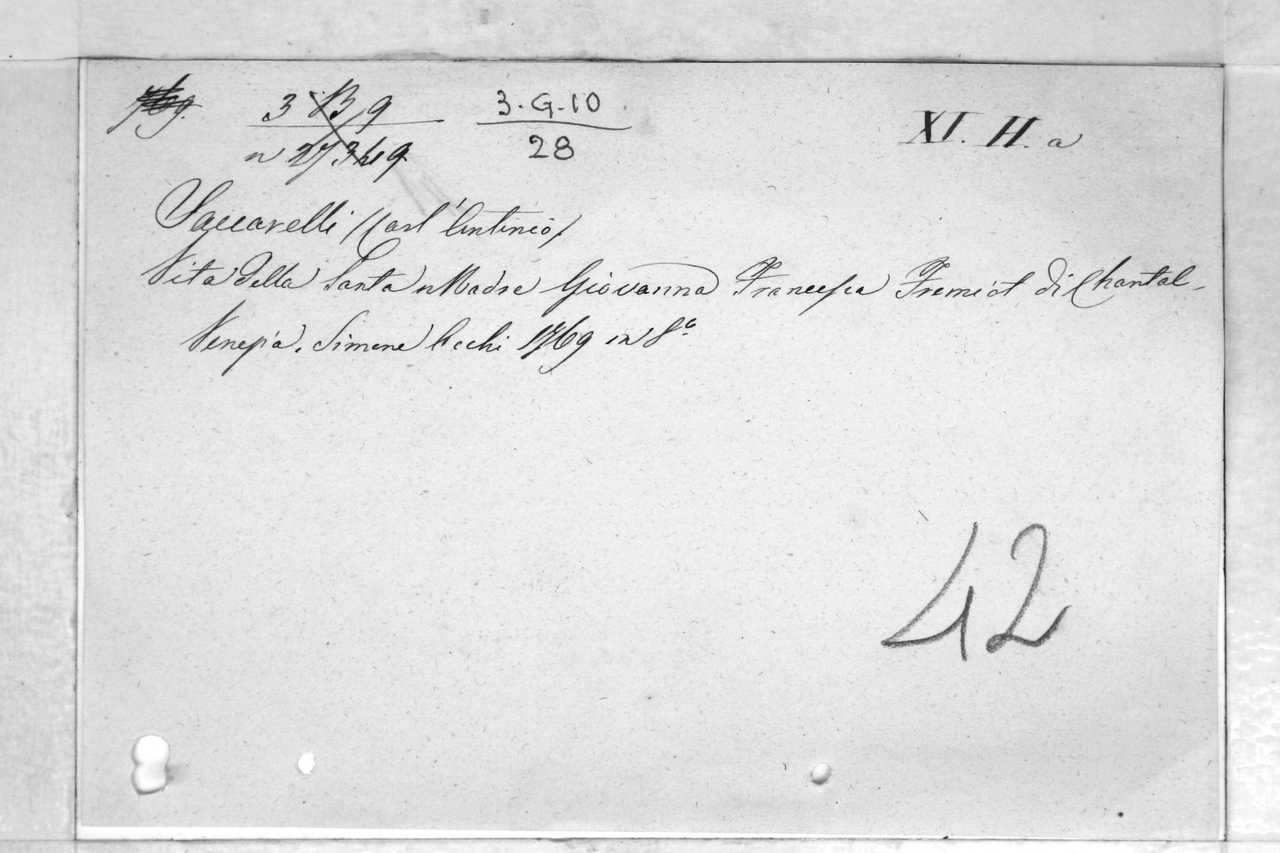 3 B 9 3.G.10 XI. H. a
n 27349 28
Saccarelli (Carl'Antonio)
Vita della Santa Madre Giovanna Francesca Fremiot di Chantal -
Venezia. Simone Occhi 1769 in 8º
42